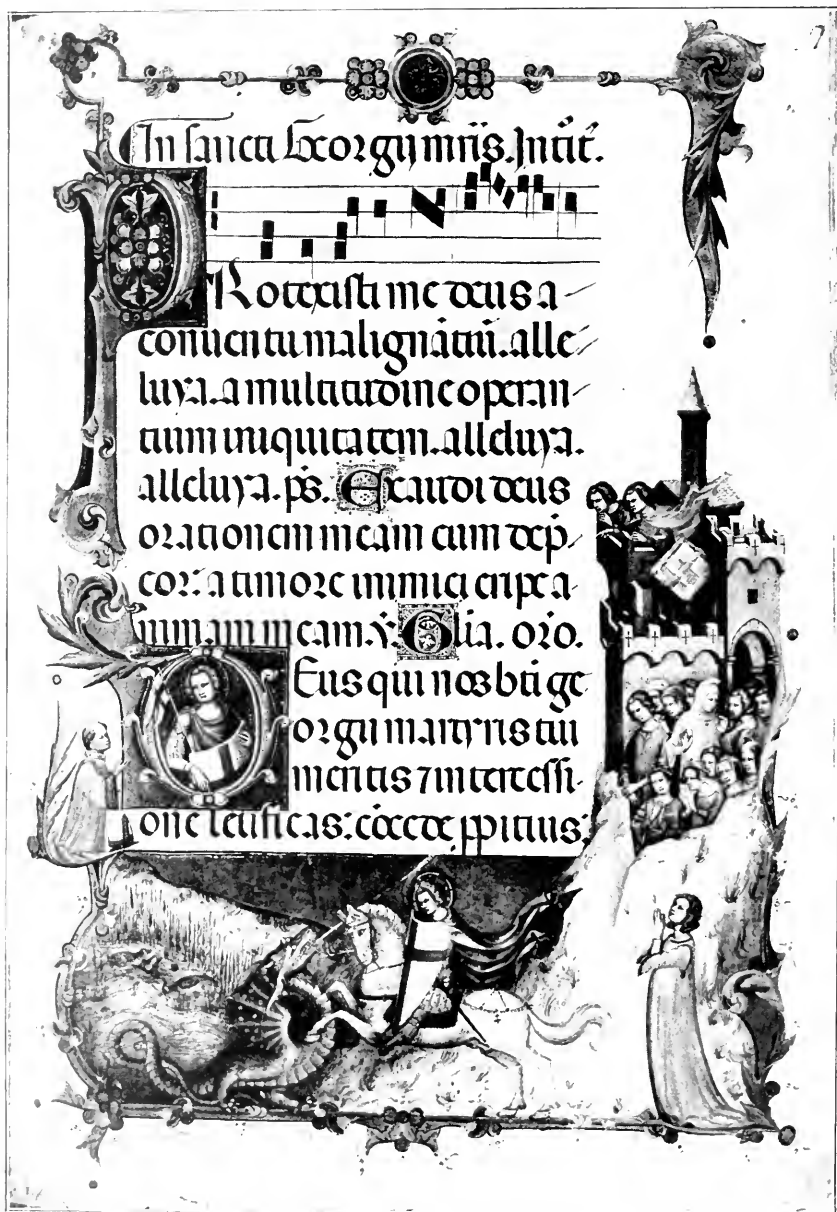 In sancti Georgii mr̄is. Intit̄.
PRotexisti me deus a
conuentu malignātiū. alle
luya. a multitudine operan
tium iniquitatem. alleluya.
alleluya. p̄s. Exaudi deus
orationem meam cum dep̄
cor: a timore inimici eripe a
nimam meam. ℣. Gl̄ia. oŕo.
DEus qui nos b̄ti ge
orgii martyris tui
meritis ⁊ intercessi
one letificas: cōcede ꝓpitius: